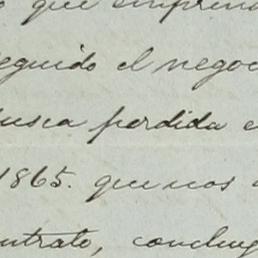 que empren
eguido el negoc
usca perdida e
1865. que nos
ntrato, concluy